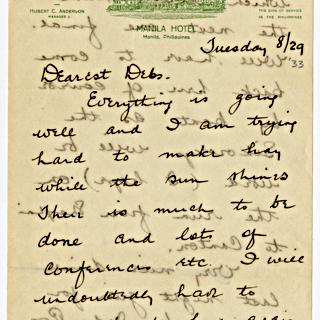 HUBERT C. ANDERSON
MANAGER
MANILA HOTEL
Manila, Philippines
THE SIGN OF SERVICE
IN THE PHILIPPINES
Tuesday 8/29
'33
Dearest Debs.
Everything is going
well and I am trying
hard to make hay
while the sun shines
Their is much to be
done and lots of
conferences etc. I will
undoubtedly have to